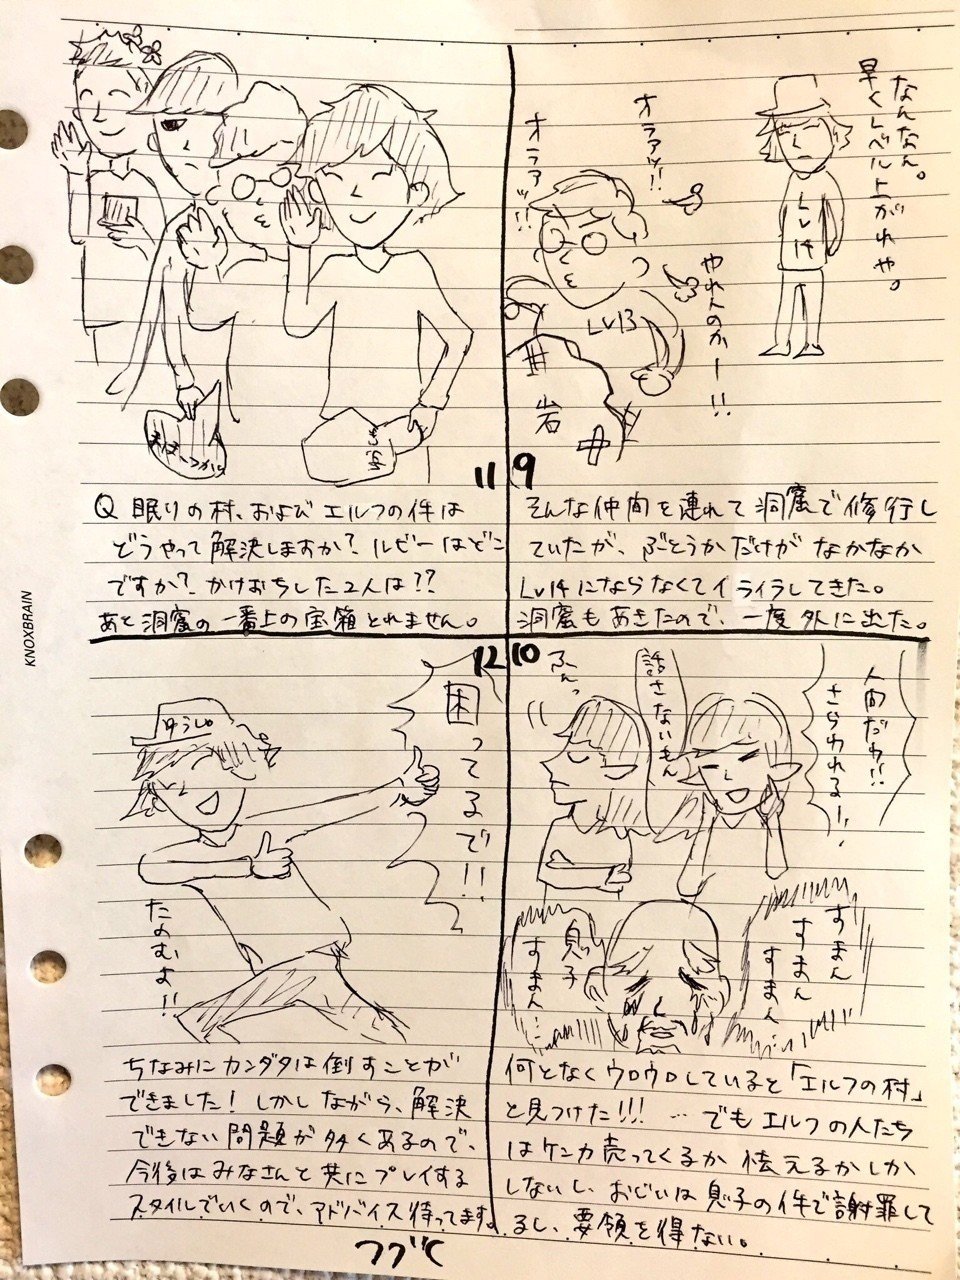 なんなん。
早くレベル上がれや。
Lv14
オラアッ!!
オラアッ!!
やれんのかー!!
Lv13
岩
9
そんな仲間を連れて洞窟で修行し
ていたが、ぶとうかだけがなかなか
Lv14にならなくてイライラしてきた。
洞窟もあきたので、一度外に出た。
10
人間だわ!!
さらわれるー!
話さないもん
ふんっ
すまん
すまん
すまん…
息子
すまん…
何となくウロウロしていると「エルフの村」
と見つけた!!! …でもエルフの人たち
はケンカ売ってくるか怯えるかしか
しないし、おじいは息子の件で謝罪して
るし、要領を得ない。
11
まほうつかい
ゆうしゃ
Q 眠りの村、および エルフの件は
どうやって解決しますか?ルビーはどこ
ですか?かけおちした2人は??
あと洞窟の一番上の宝箱とれません。
12
困ってるで!!
ゆうしゃ
たのむよ!!
ちなみにカンダタは倒すことが
できました!しかしながら、解決
できない問題が多くあるので、
今後はみなさんと共にプレイする
スタイルでいくので、アドバイス待ってます。
つづく
KNOXBRAIN